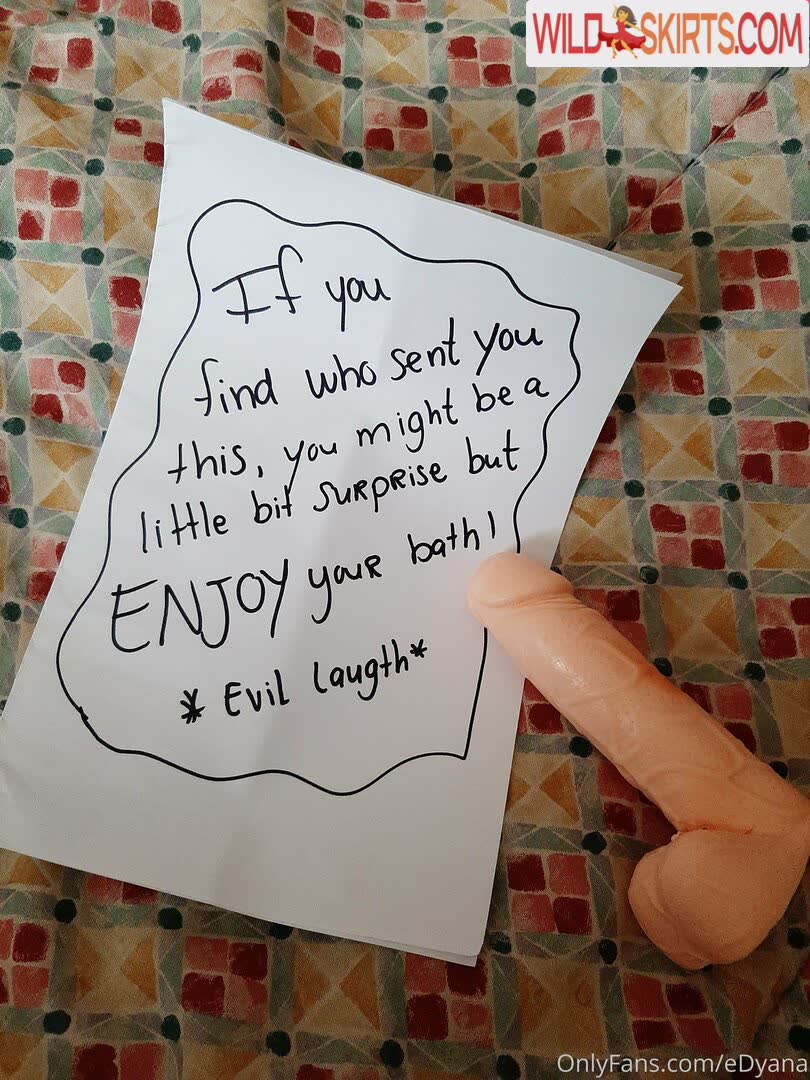 WILD SKIRTS.COM
If you
find who sent you
this, you might be a
little bit SURPRise but
ENJOY youR bath!
* Evil laugth*
OnlyFans.com/eDyana